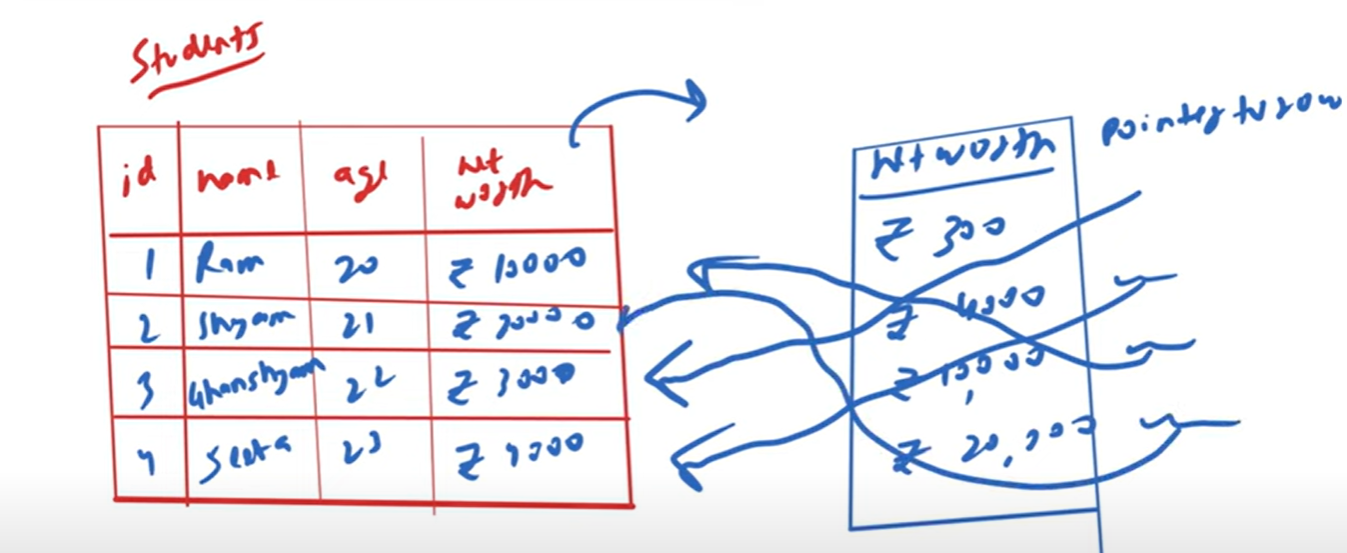 Students
id name age Net worth
1 Ram 20 ₹ 10000
2 Shyam 21 ₹ 20000
3 Ghanshyam 22 ₹ 3000
4 Seeta 23 ₹ 4000
Net worth pointer to row
₹ 300
₹ 4000
₹ 10,000
₹ 20,000